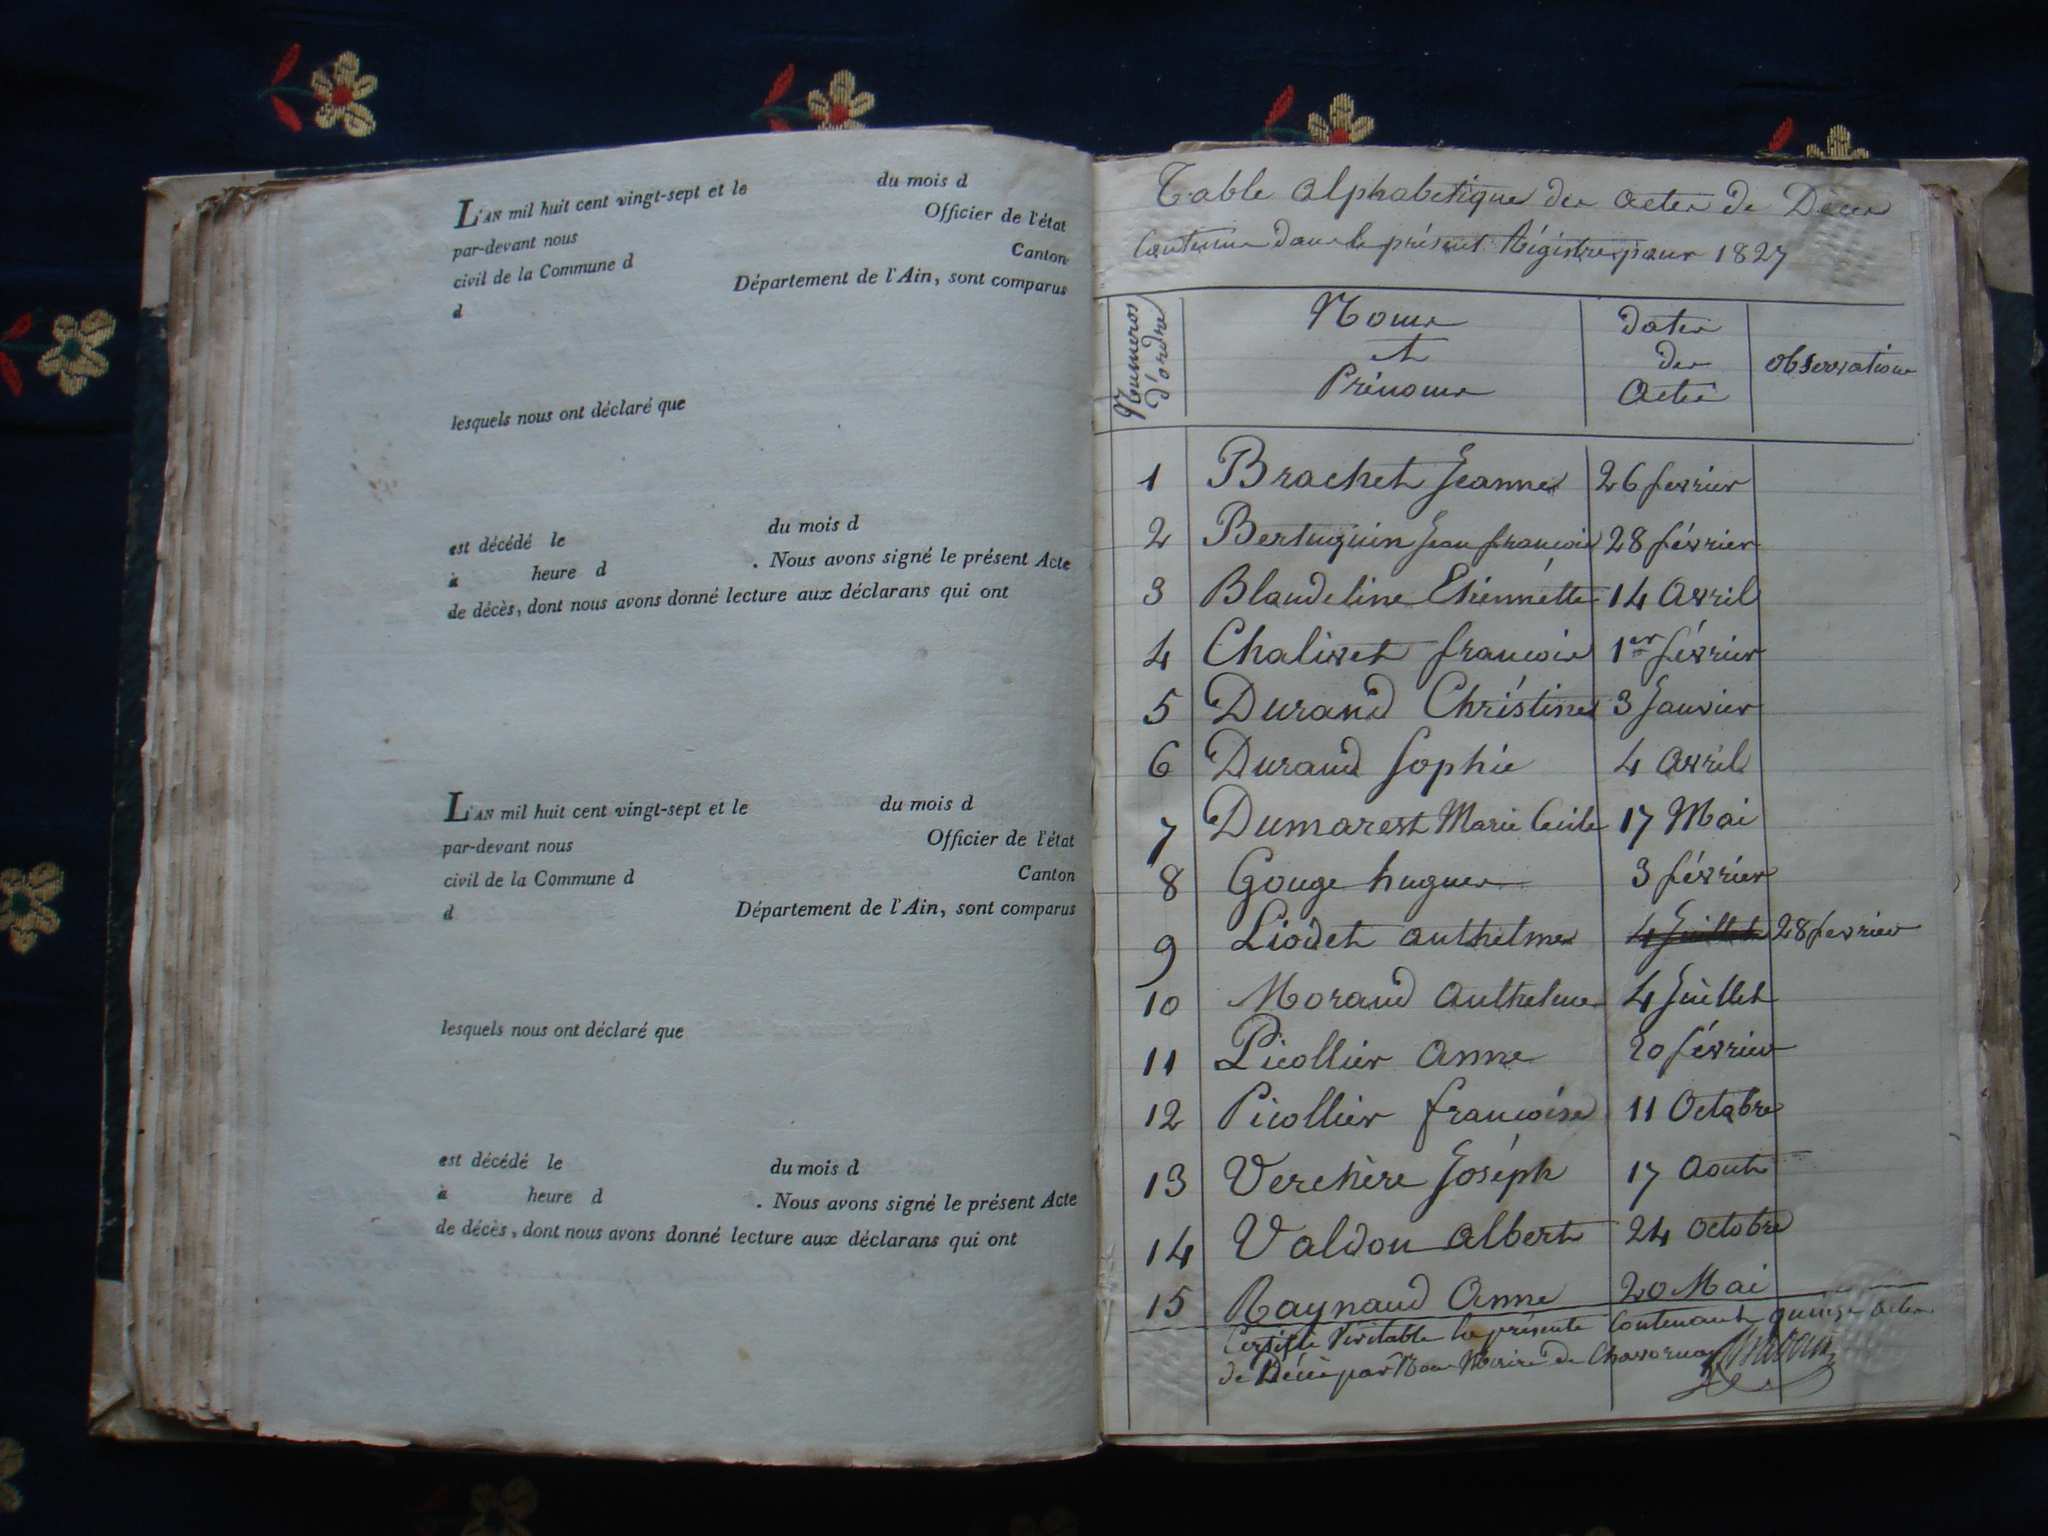 L'AN mil huit cent vingt-sept et le du mois d
par-devant nous Officier de l'état
civil de la Commune d Canton
d Département de l'Ain, sont comparus
lesquels nous ont déclaré que
est décédé le du mois d
à heure d . Nous avons signé le présent Acte
de décès, dont nous avons donné lecture aux déclarans qui ont
L'AN mil huit cent vingt-sept et le du mois d
par-devant nous Officier de l'état
civil de la Commune d Canton
d Département de l'Ain, sont comparus
lesquels nous ont déclaré que
est décédé le du mois d
à heure d . Nous avons signé le présent Acte
de décès, dont nous avons donné lecture aux déclarans qui ont
Table alphabetique des actes de Décès
Contenus dans le présent Régistre pour 1827
Numeros d'ordre
Noms et Prénoms
dates des Actes
observations
1 Brachet Jeanne 26 fevrier
2 Jean francois 28 février
3 Blandeline Etiennette 14 Avril
4 Chalivet francois 1er février
5 Durand Christine 3 Janvier
6 Durand Sophie 4 avril
7 Dumarest Marie Cecile 17 Mai
8 Gouge hugues 3 février
9 Liodet anthelme 4 Juillet 28 fevrier
10 Morand Anthelme 4 Juillet
11 Picollier Anne 20 février
12 Picollier francoise 11 Octobre
13 Verchère Joséph 17 Aout
14 Valdon albert 24 octobre
15 Raynaud Anne 20 Mai
Certifié Véritable la présente Contenant quinze actes
de Décès par Nous Maire de Chavornay